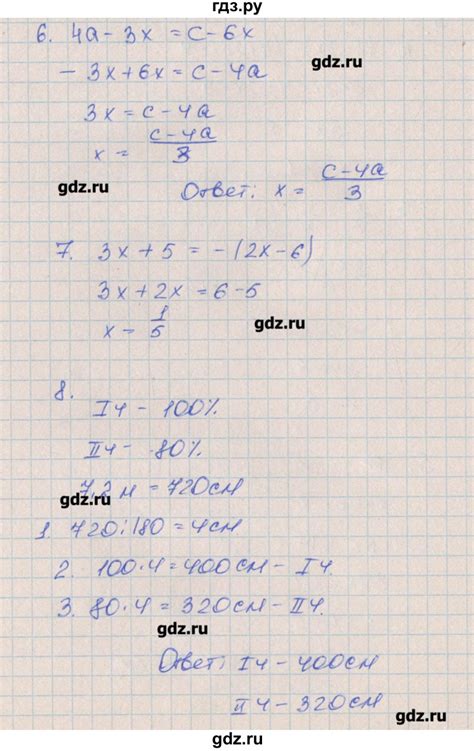 гдз.ру
6. 4a - 3x = c - 6x
gdz.ru
- 3x + 6x = c - 4a
3x = c - 4a
x = c - 4a / 3
gdz.ru
Ответ: x = c - 4a / 3
gdz.ru
7. 3x + 5 = - (2x - 6)
3x + 2x = 6 - 5
x = 1/5
gdz.ru
8.
I ч - 100%
gdz.ru
II ч - 80%
7,2 м = 720 см
gdz.ru
1. 720 : 180 = 4 см
2. 100 · 4 = 400 см - I ч.
gdz.ru
3. 80 · 4 = 320 см - II ч.
gdz.ru
Ответ: I ч - 400 см
II ч - 320 см
gdz.ru